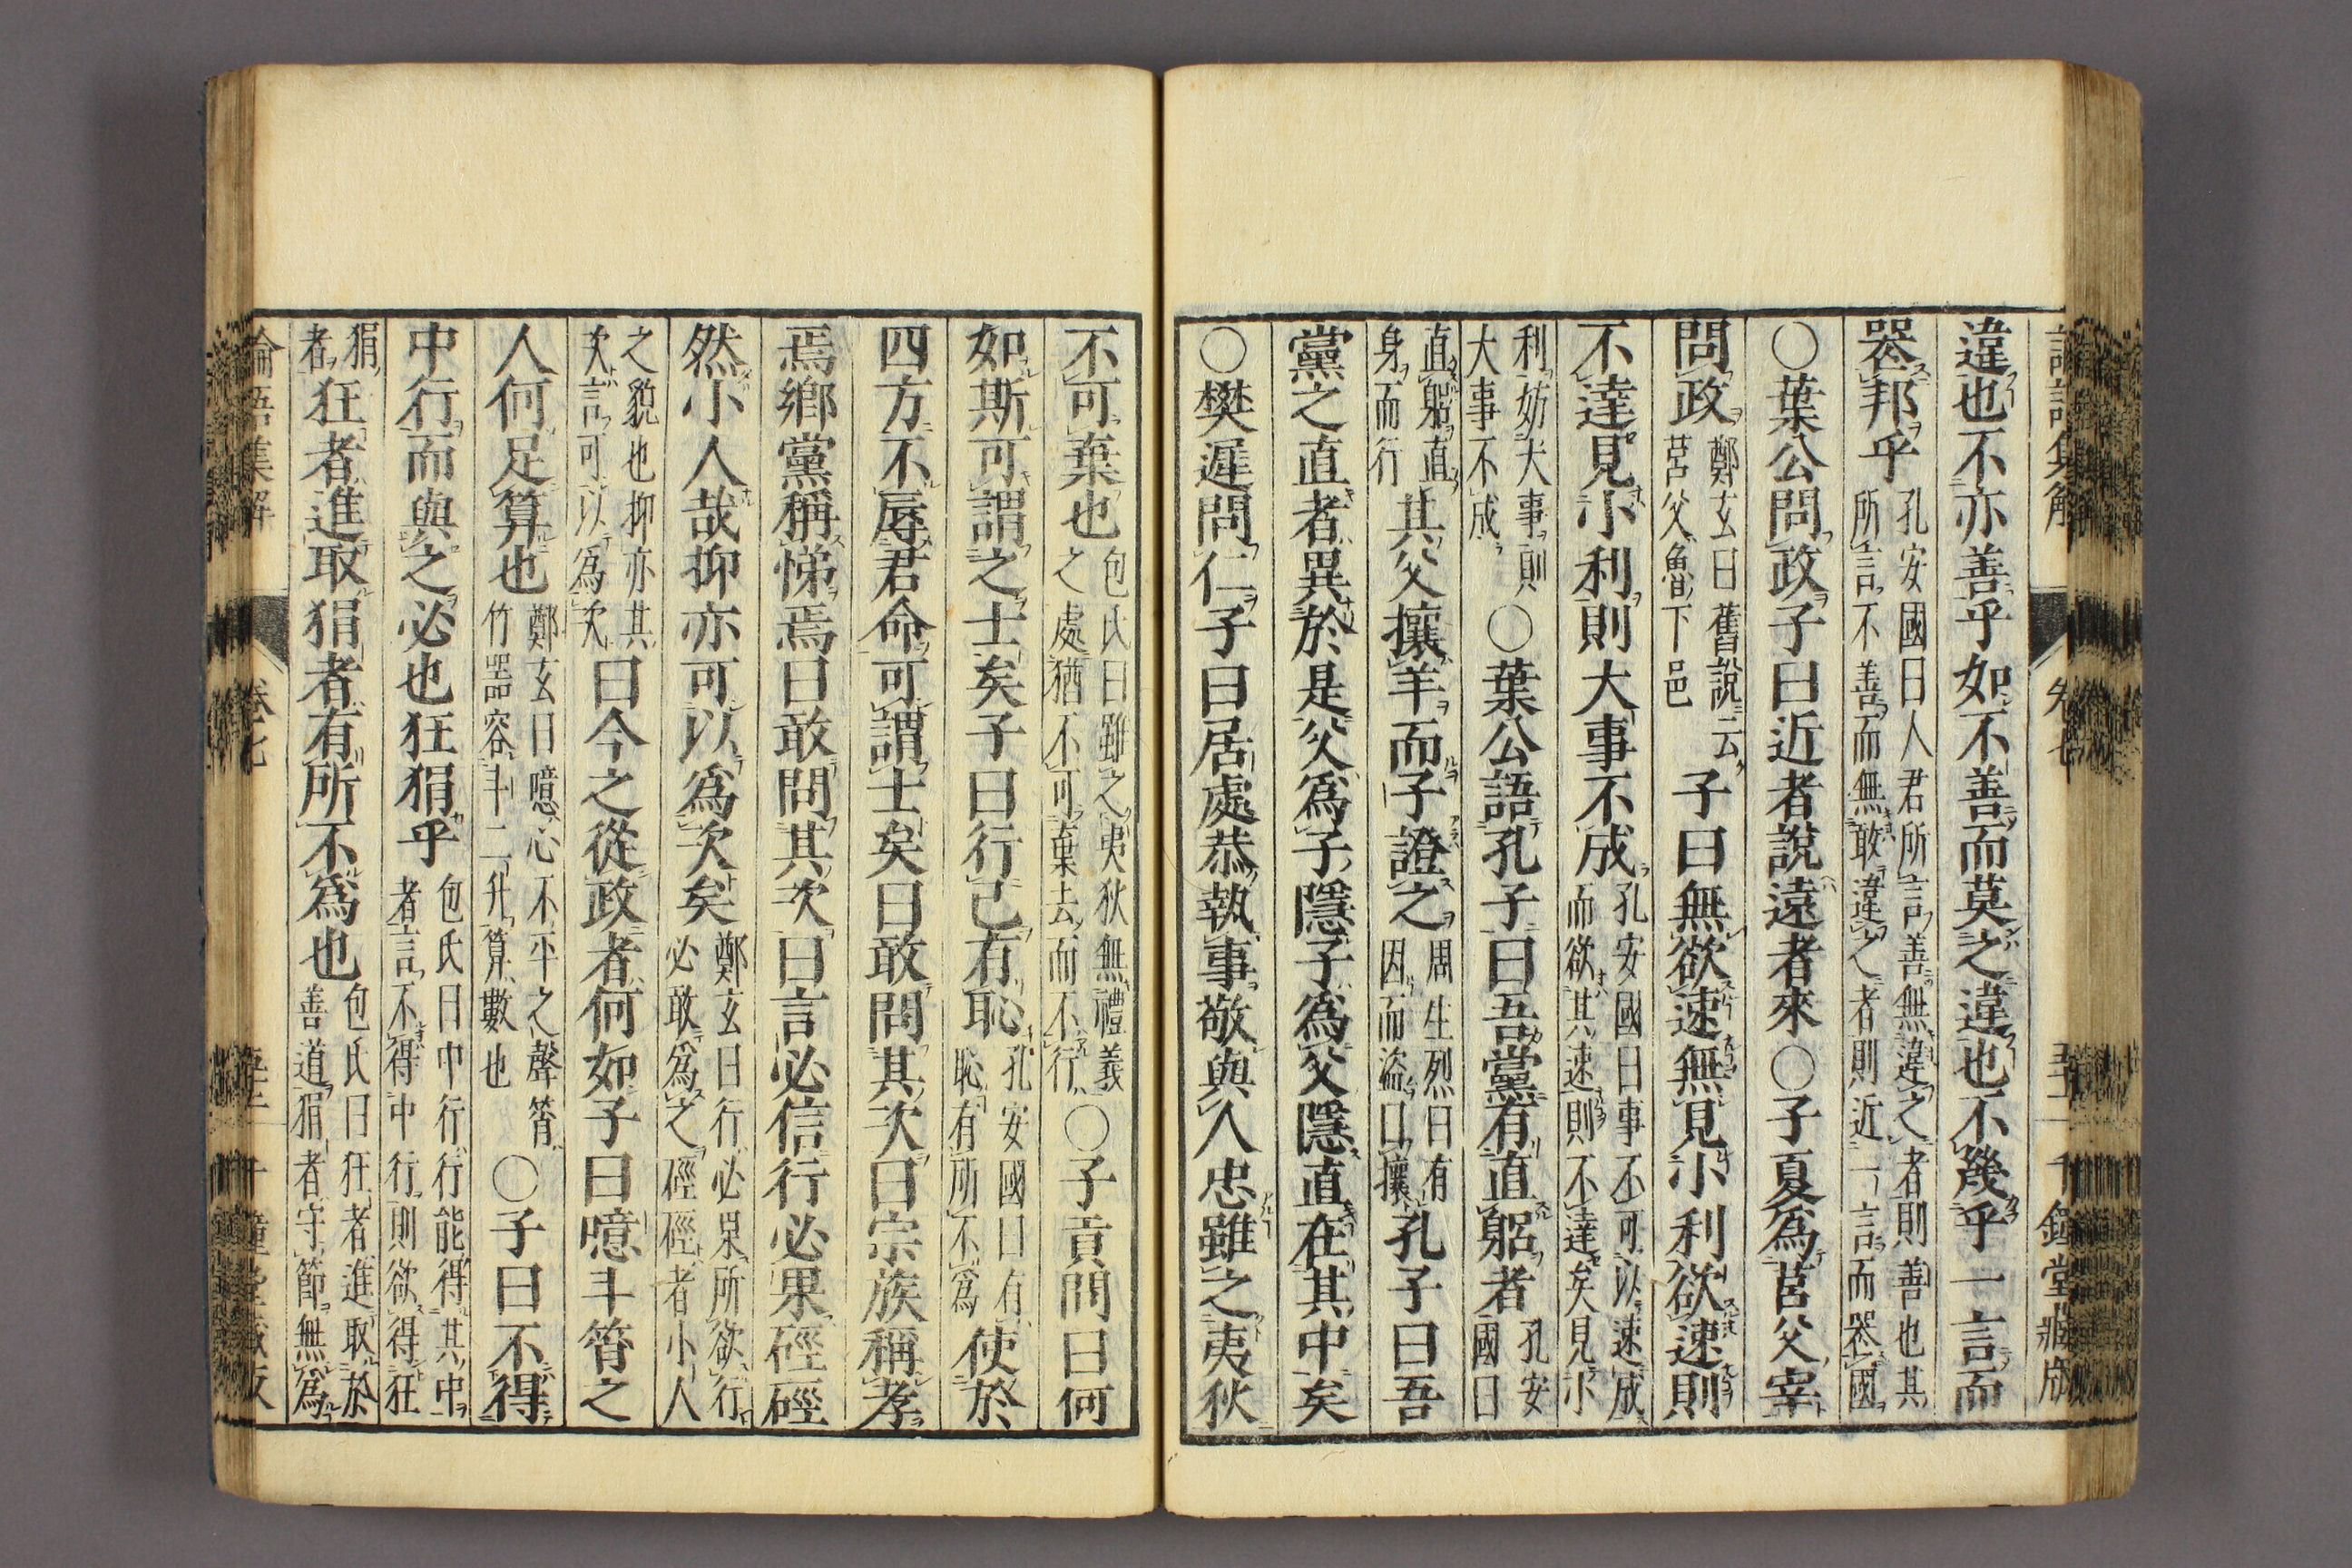 違也不亦善乎如不善而莫之違也不幾乎一言而
喪邦乎孔安國曰人君所言善無違之者則善也其
所言不善而無敢違之者則近一言而喪國
○葉公問政子曰近者說遠者來○子夏爲莒父宰
問政鄭玄曰舊說云
莒父魯下邑子曰無欲速無見小利欲速則
不達見小利則大事不成孔安國曰事不可以速成
而欲其速則不達矣見小
利妨大事則
大事不成○葉公語孔子曰吾黨有直躬者孔安
國曰
直躬直
身而行其父攘羊而子證之周生烈曰有
因而盗曰攘孔子曰吾
黨之直者異於是父爲子隱子爲父隱直在其中矣
○樊遲問仁子曰居處恭執事敬與人忠雖之夷狄
不可棄也包氏曰雖之夷狄無禮義
之處猶不可棄去而不行○子貢問曰何
如斯可謂之士矣子曰行己有恥孔安國曰有
恥有所不爲使於
四方不辱君命可謂士矣曰敢問其次曰宗族稱孝
焉鄉黨稱悌焉曰敢問其次曰言必信行必果硜硜
然小人哉抑亦可以爲次矣鄭玄曰行必果所欲行
必敢爲之硜硜者小人
之貌也抑亦其
次言可以爲次曰今之從政者何如子曰噫斗筲之
人何足算也鄭玄曰噫心不平之聲筲
竹器容斗二升算數也○子曰不得
中行而與之必也狂狷乎包氏曰中行行能得其中
者言不得中行則欲得狂
狷
者狂者進取狷者有所不爲也包氏曰狂者進取於
善道狷者守節無爲
論語集解 卷七